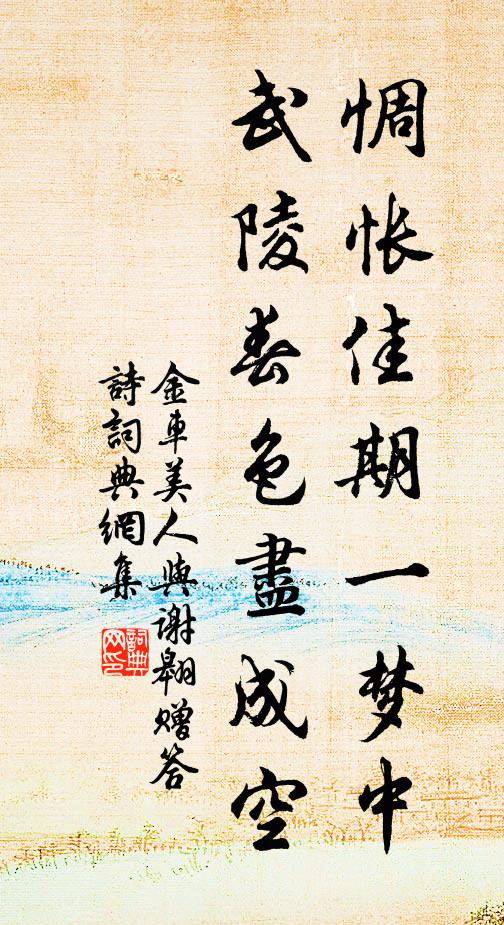 惆悵佳期一梦中
武陵春色盡成空
金車美人與謝翱贈答
詩詞典網集
詞典
网印